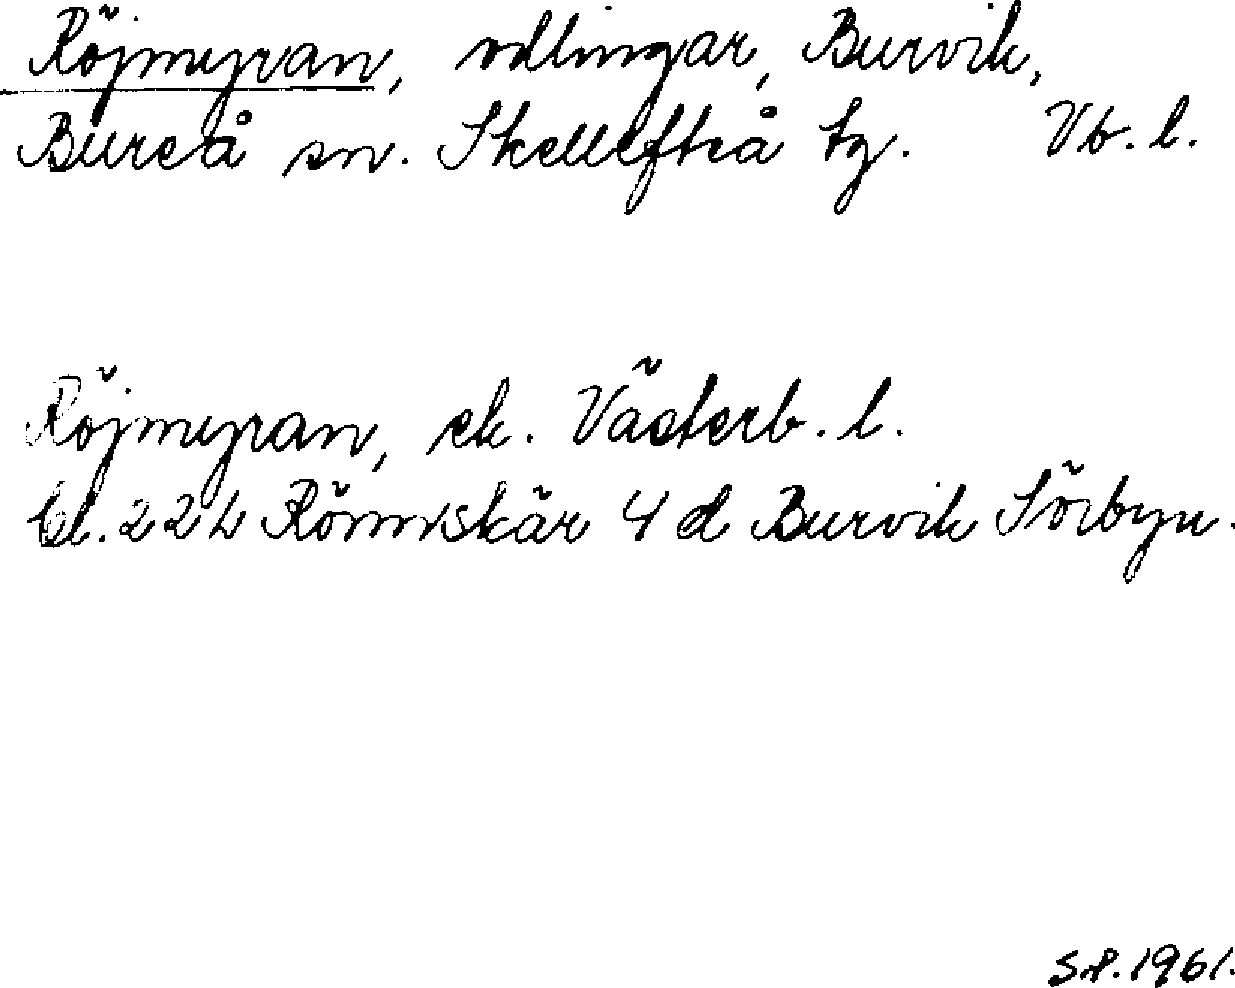 Röjmyran, odlingar, Burvik,
Bureå sn. Skellefteå tg. Vb. l.
Röjmyran, ek. Västerb. l.
bl. 224 Rönnskär 4 d Burvik Sörbyn.
S.P. 1961.